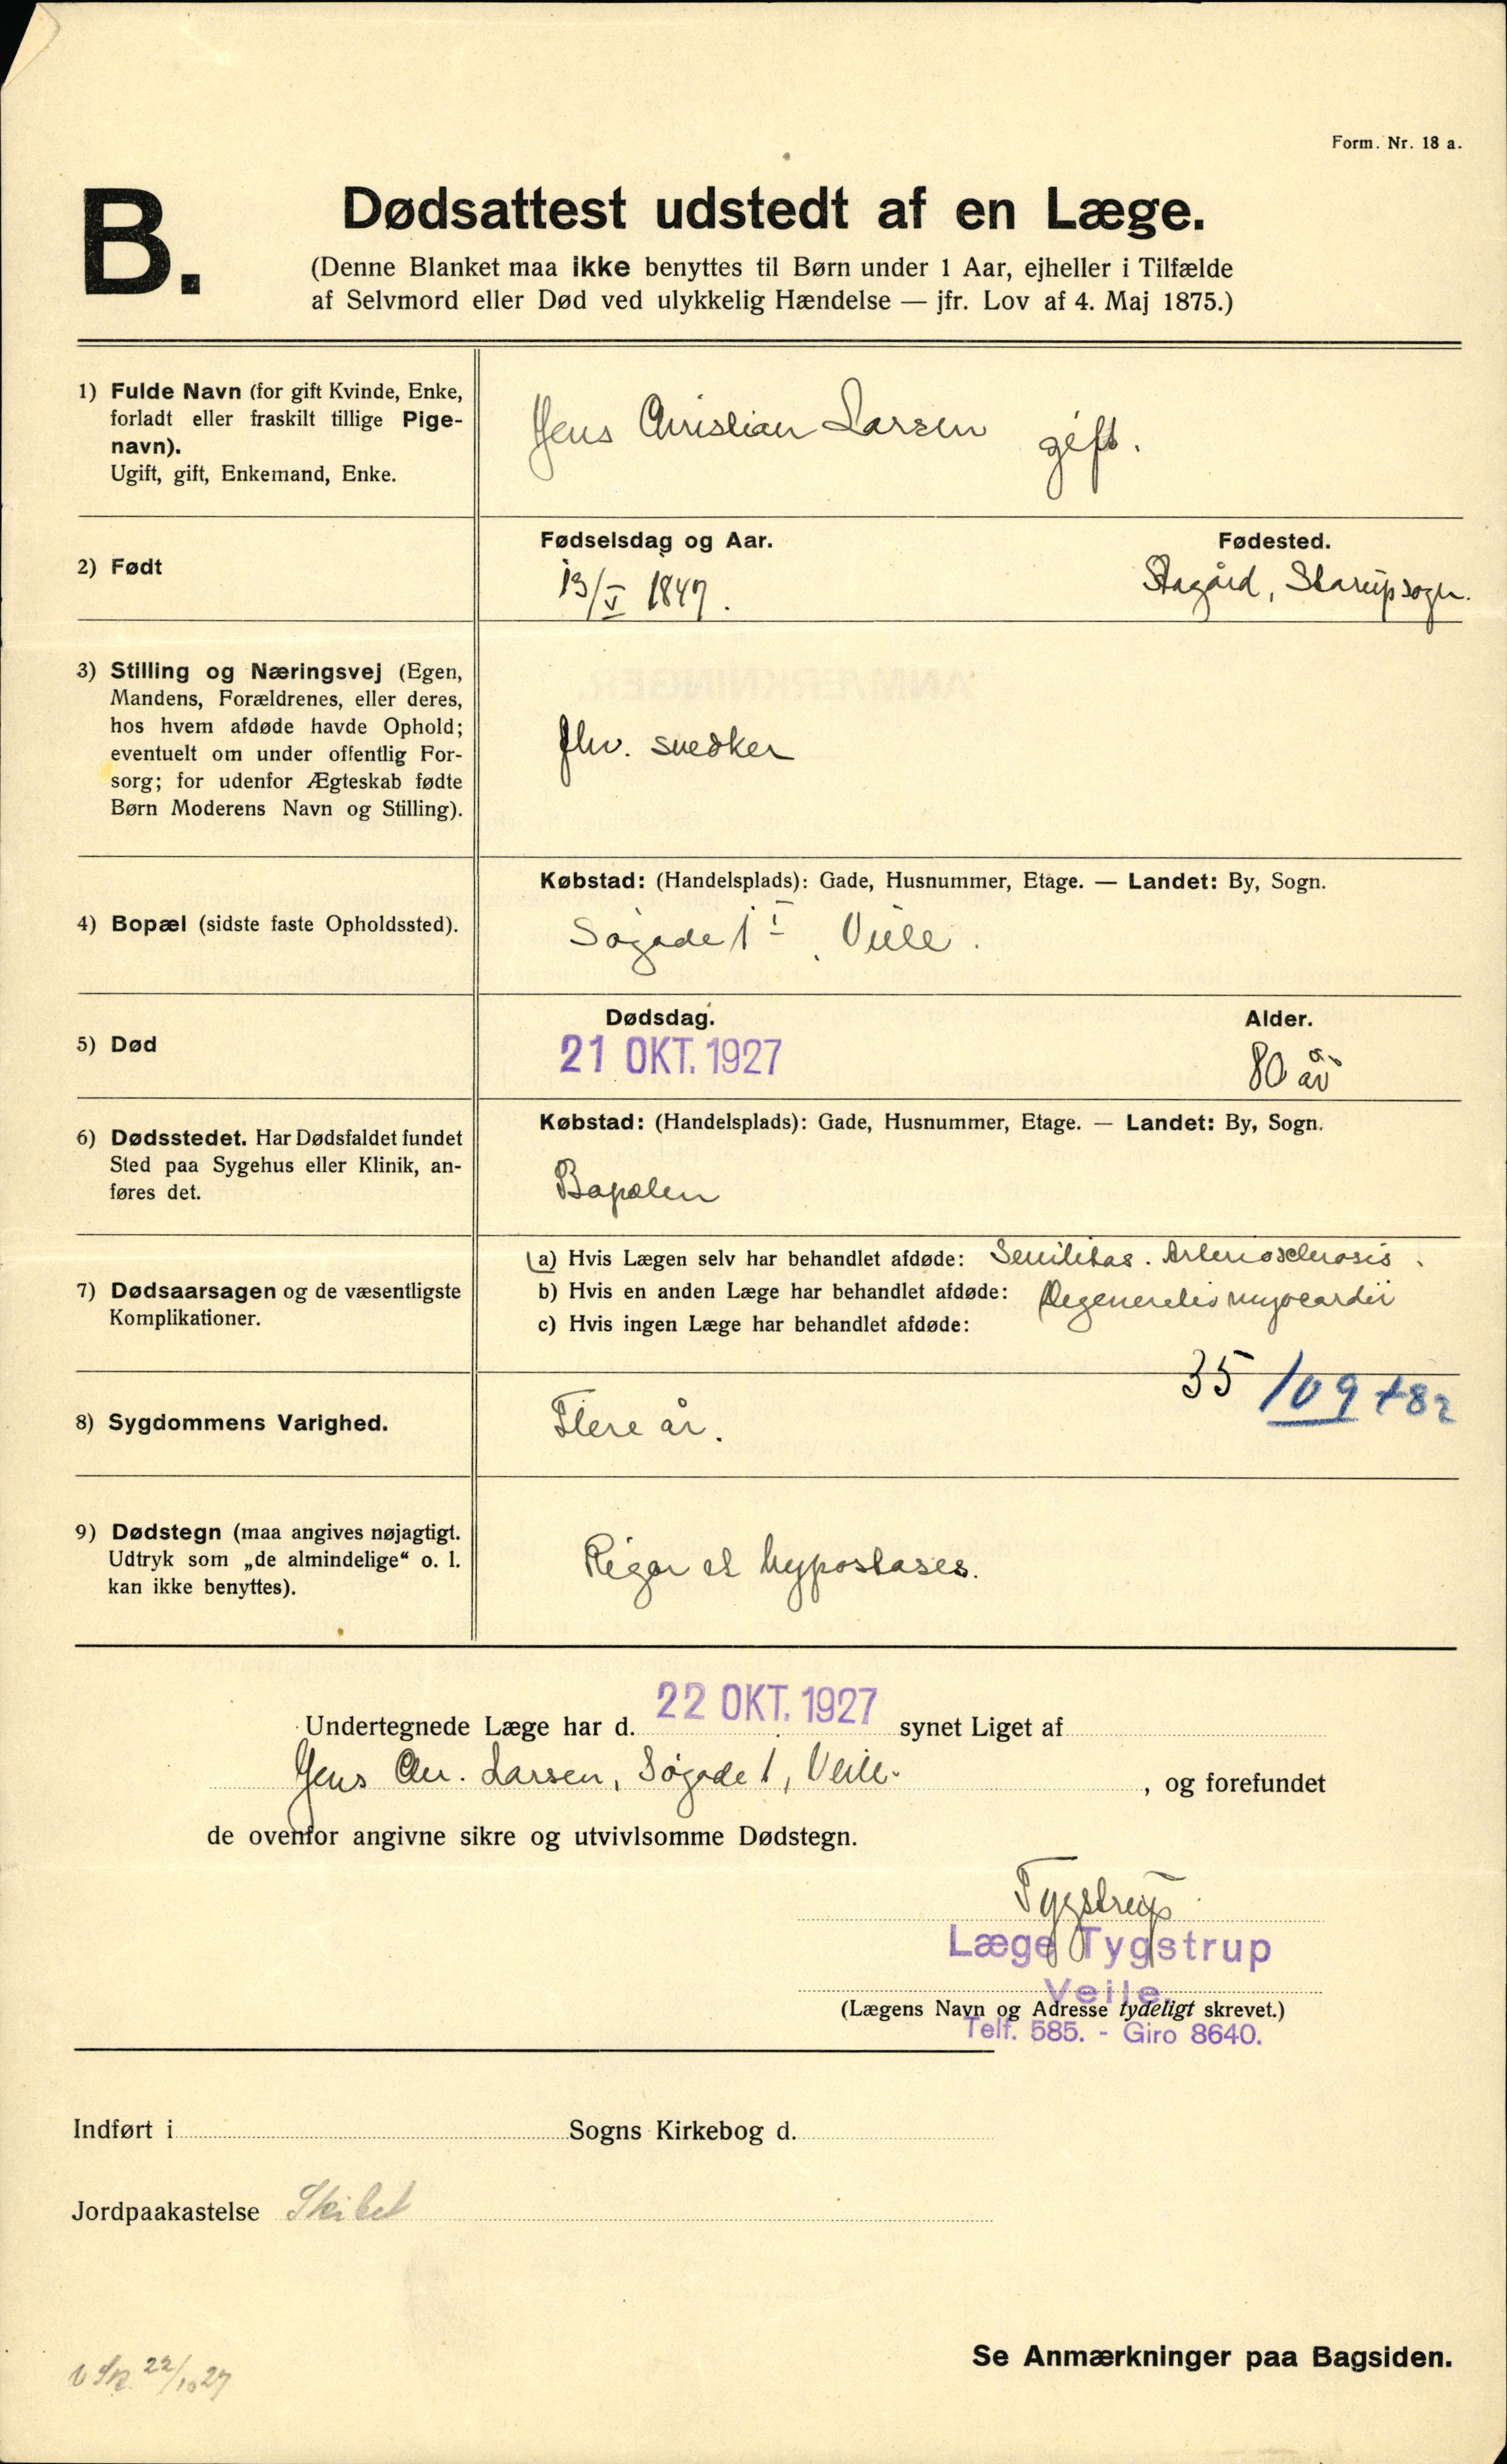 Form. Nr. 18 a.
B.
Dødsattest udstedt af en Læge.
(Denne Blanket maa ikke benyttes til Børn under 1 Aar, ejheller i Tilfælde
af Selvmord eller Død ved ulykkelig Hændelse — jfr. Lov af 4. Maj 1875.)
1) Fulde Navn (for gift Kvinde, Enke,
forladt eller fraskilt tillige Pige-
navn).
Ugift, gift, Enkemand, Enke.
Jens Christian Larsen gift.
2) Født
Fødselsdag og Aar.
13/V 1847.
Fødested.
Stagård, Starup sogn.
3) Stilling og Næringsvej (Egen,
Mandens, Forældrenes, eller deres,
hos hvem afdøde havde Ophold;
eventuelt om under offentlig For-
sorg; for udenfor Ægteskab fødte
Børn Moderens Navn og Stilling).
fhv. snedker
4) Bopæl (sidste faste Opholdssted).
Købstad: (Handelsplads): Gade, Husnummer, Etage. — Landet: By, Sogn.
Søgade 1 I, Veile.
5) Død
Dødsdag.
21 OKT. 1927
Alder.
80 år
6) Dødsstedet. Har Dødsfaldet fundet
Sted paa Sygehus eller Klinik, an-
føres det.
Købstad: (Handelsplads): Gade, Husnummer, Etage. — Landet: By, Sogn.
Bopælen
7) Dødsaarsagen og de væsentligste
Komplikationer.
(a) Hvis Lægen selv har behandlet afdøde: Senilitas. Arteriosclerosis.
b) Hvis en anden Læge har behandlet afdøde: Degeneratio myocardii
c) Hvis ingen Læge har behandlet afdøde:
35 109 +82
8) Sygdommens Varighed.
Flere år.
9) Dødstegn (maa angives nøjagtigt.
Udtryk som „de almindelige“ o. l.
kan ikke benyttes).
Rigor et hypostases.
Undertegnede Læge har d. 22 OKT. 1927 synet Liget af
Jens Chr. Larsen, Søgade 1, Veile. , og forefundet
de ovenfor angivne sikre og utvivlsomme Dødstegn.
Tygstrup
Læge Tygstrup
Veile.
(Lægens Navn og Adresse tydeligt skrevet.)
Telf. 585. - Giro 8640.
Indført i Sogns Kirkebog d.
Jordpaakastelse Skibet
Se Anmærkninger paa Bagsiden.
22/10 27